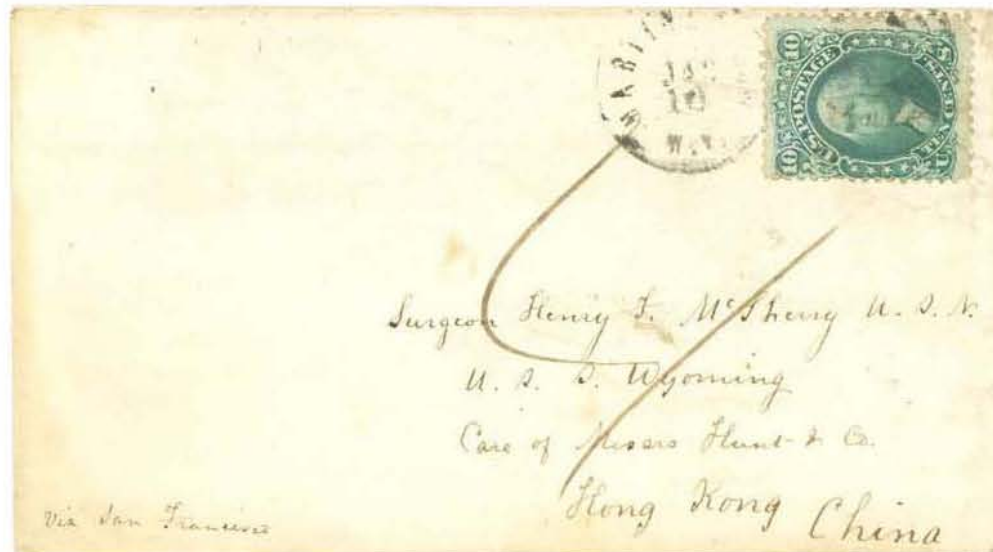 JAN
10
W.VA
10 10
U.S. POSTAGE
TEN CENTS
U S
Surgeon Henry F. McSherry U. S. N.
U. S. S. Wyoming
Care of Messrs Hunt & Co.
Hong Kong China
Via San Francisco